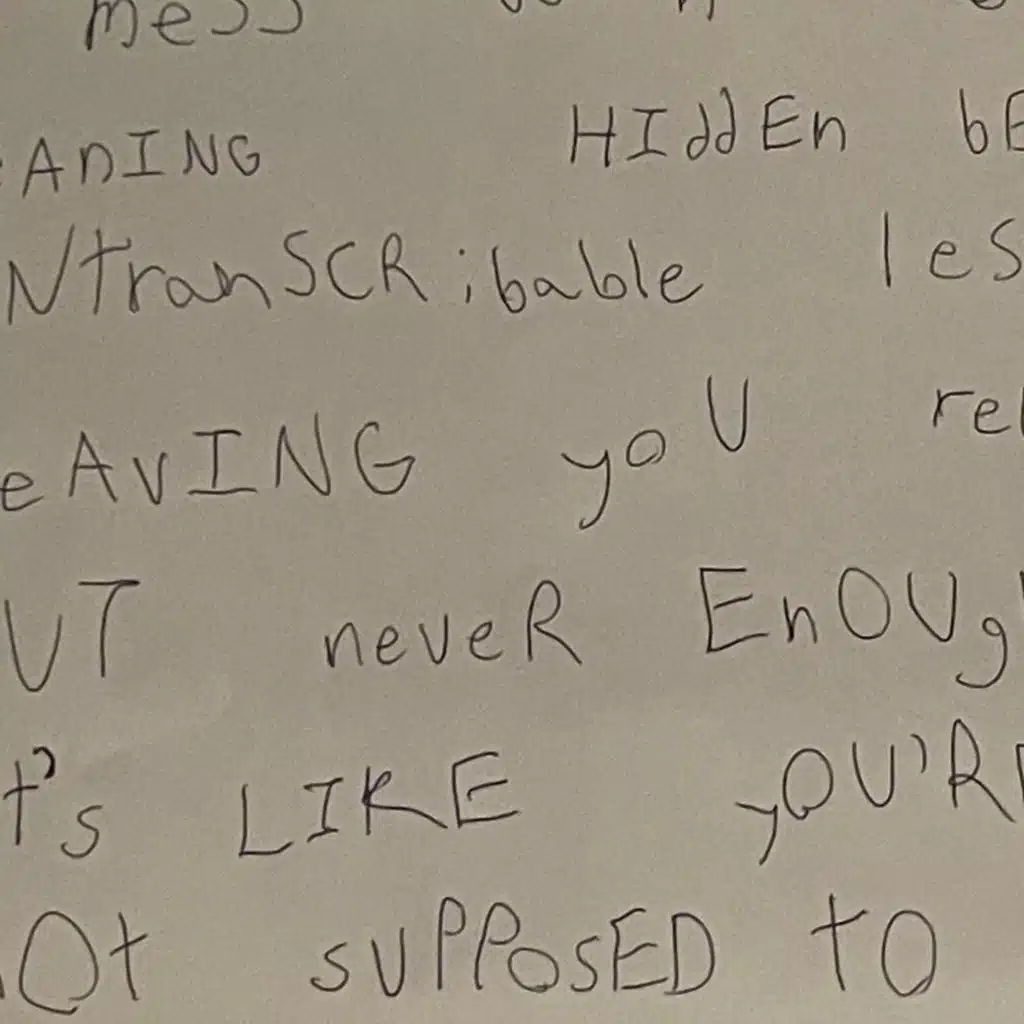 mess
EANING HIddEn bE
NtranSCRibable les
eAvING yoU rel
UT neveR EnOUg
t's LIKE yOU'RE
Ot sUPPosED tO